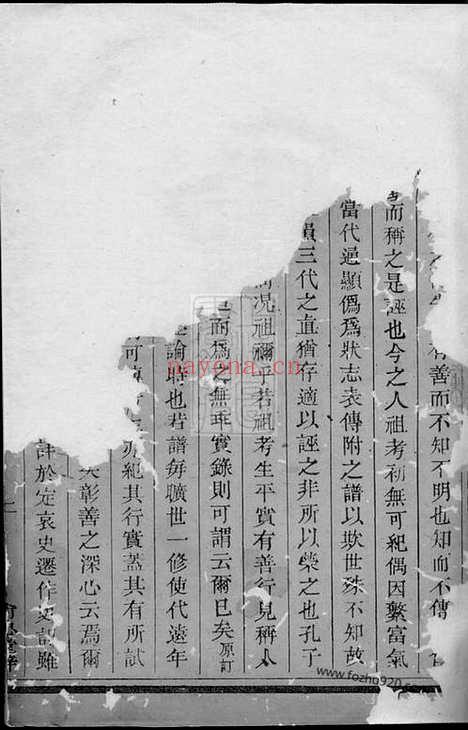 有善而不知不明也知而不傳
而稱之是誣也今之人祖考初無可紀偶因繁富氣
當代通顯僞爲狀志表傳附之譜以欺世殊不知故
三代之直猶存適以誣之非所以榮之也孔子
况祖禰乎若祖考生平實有善行見稱人
而爲之無乖實錄則可謂云爾已矣原訂
論時也若譜每曠世一修使代遠年
可 亦紀其行實蓋其有所試
彰善之深心云焉爾
詳於定哀史遷作史記雖
nayona.cn
www.fozhu920.com